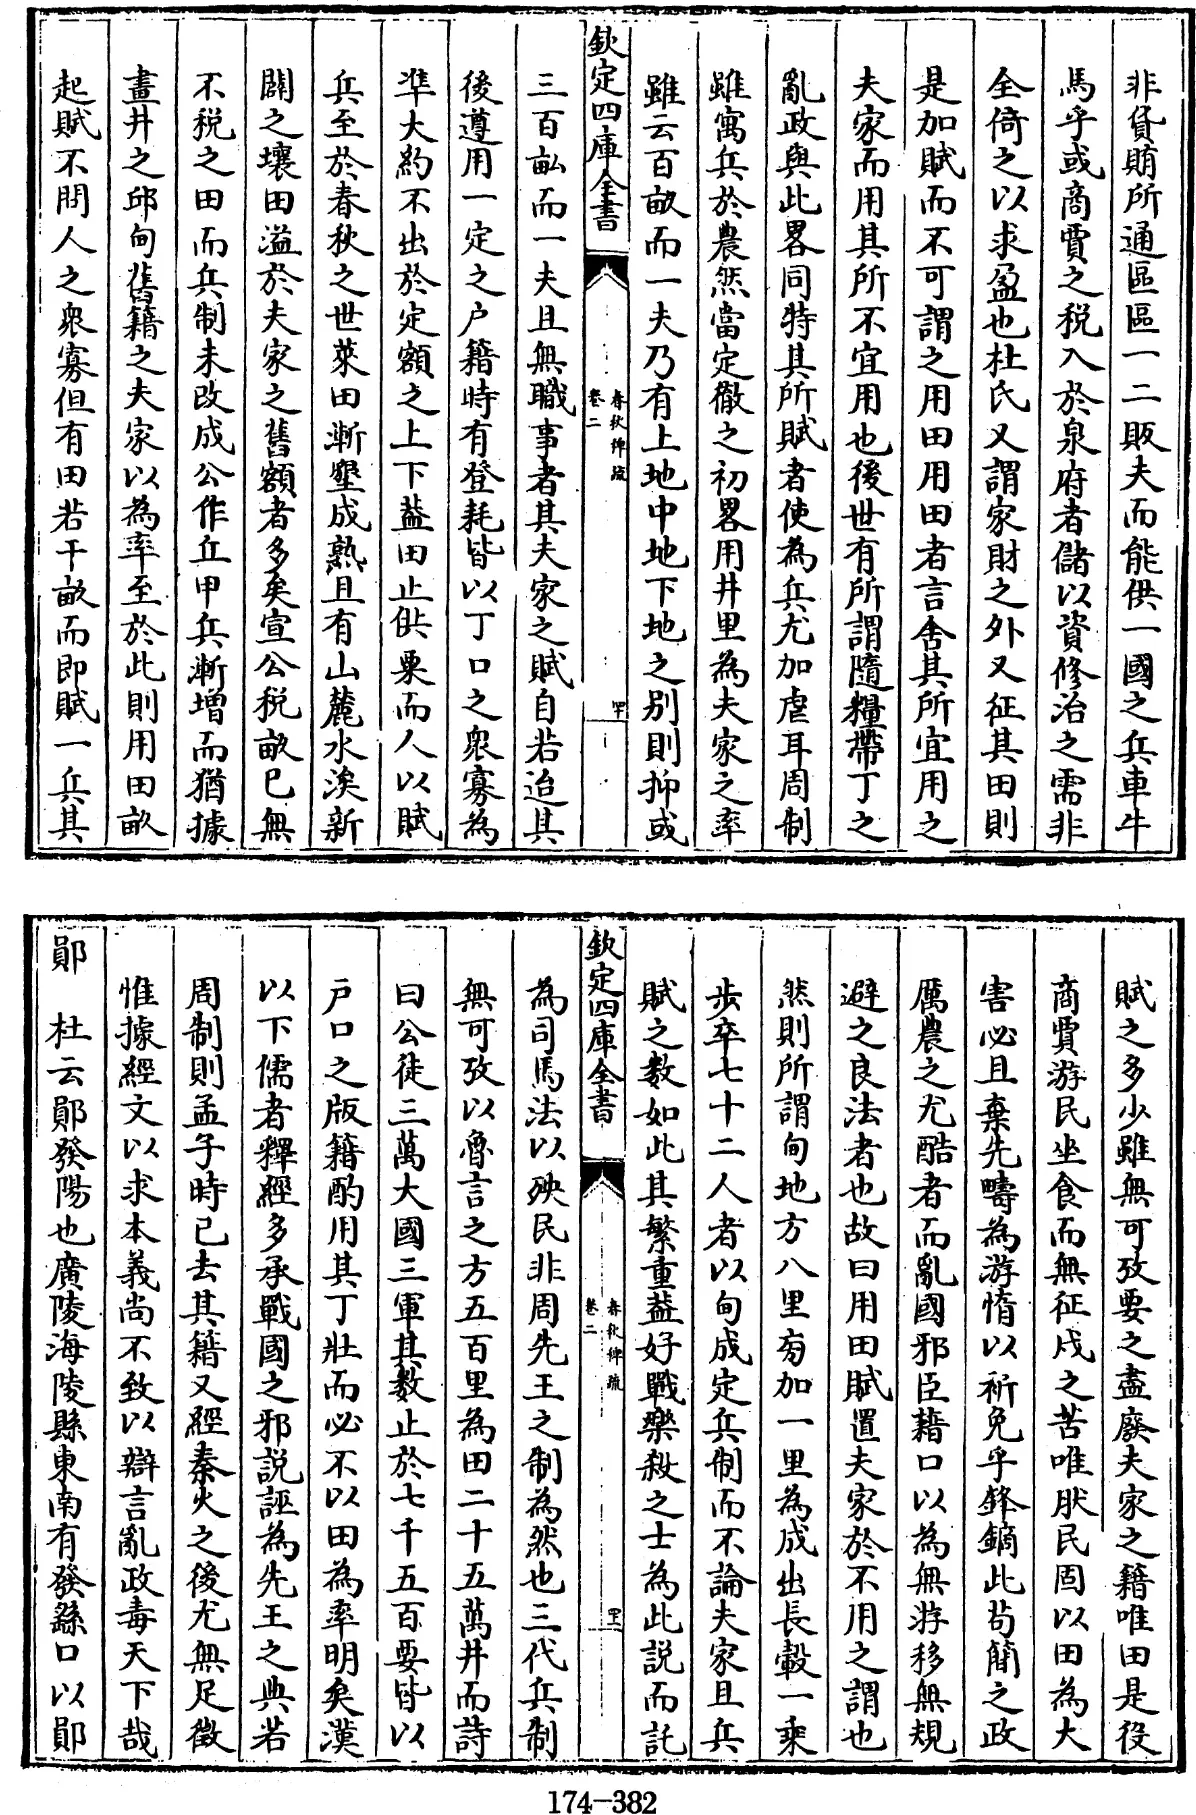 非貸賄所通區區一二販夫而能供一國之兵車牛
馬乎或商賈之税入於泉府者儲以資修治之需非
全倚之以求盈也杜氏又謂家財之外又征其田則
是加賦而不可謂之用田用田者言舍其所宜用之
夫家而用其所不宜用也後世有所謂隨糧帶丁之
亂政與此畧同特其所賦者使為兵尤加虐耳周制
雖寓兵於農然當定徹之初畧用井里為夫家之率
雖云百畝而一夫乃有上地中地下地之别則抑或
欽定四庫全書
春秋稗疏
卷二
罕
三百畝而一夫且無職事者其夫家之賦自若迨其
後遵用一定之户籍時有登耗皆以丁口之衆寡為
準大約不出於定額之上下葢田止供粟而人以賦
兵至於春秋之世萊田漸墾成熟且有山麓水涘新
闢之壤田溢於夫家之舊額者多矣宣公税畝已無
不税之田而兵制未改成公作丘甲兵漸增而猶據
畫井之邱甸舊籍之夫家以為率至於此則用田畝
起賦不問人之衆寡但有田若干畝而即賦一兵其
賦之多少雖無可攷要之盡廢夫家之籍唯田是役
商賈游民坐食而無征戍之苦唯朕民固以田為大
害必且棄先疇為游惰以祈免乎鋒鏑此茍簡之政
厲農之尤酷者而亂國邪臣藉口以為無游移無規
避之良法者也故曰用田賦置夫家於不用之謂也
然則所謂甸地方八里旁加一里為成出長轂一乘
步卒七十二人者以甸成定兵制而不論夫家且兵
賦之數如此其繁重葢好戰樂殺之士為此説而託
欽定四庫全書
春秋稗疏
卷二
為司馬法以殃民非周先王之制為然也三代兵制
無可攷以魯言之方五百里為田二十五萬井而詩
曰公徒三萬大國三軍其數止於七千五百要皆以
户口之版籍酌用其丁壯而必不以田為率明矣漢
以下儒者釋經多承戰國之邪説誣為先王之典若
周制則孟子時已去其籍又經秦火之後尤無足徵
惟據經文以求本義尚不致以辯言亂政毒天下哉
鄖　杜云鄖發陽也廣陵海陵縣東南有發繇口以鄖
174-382